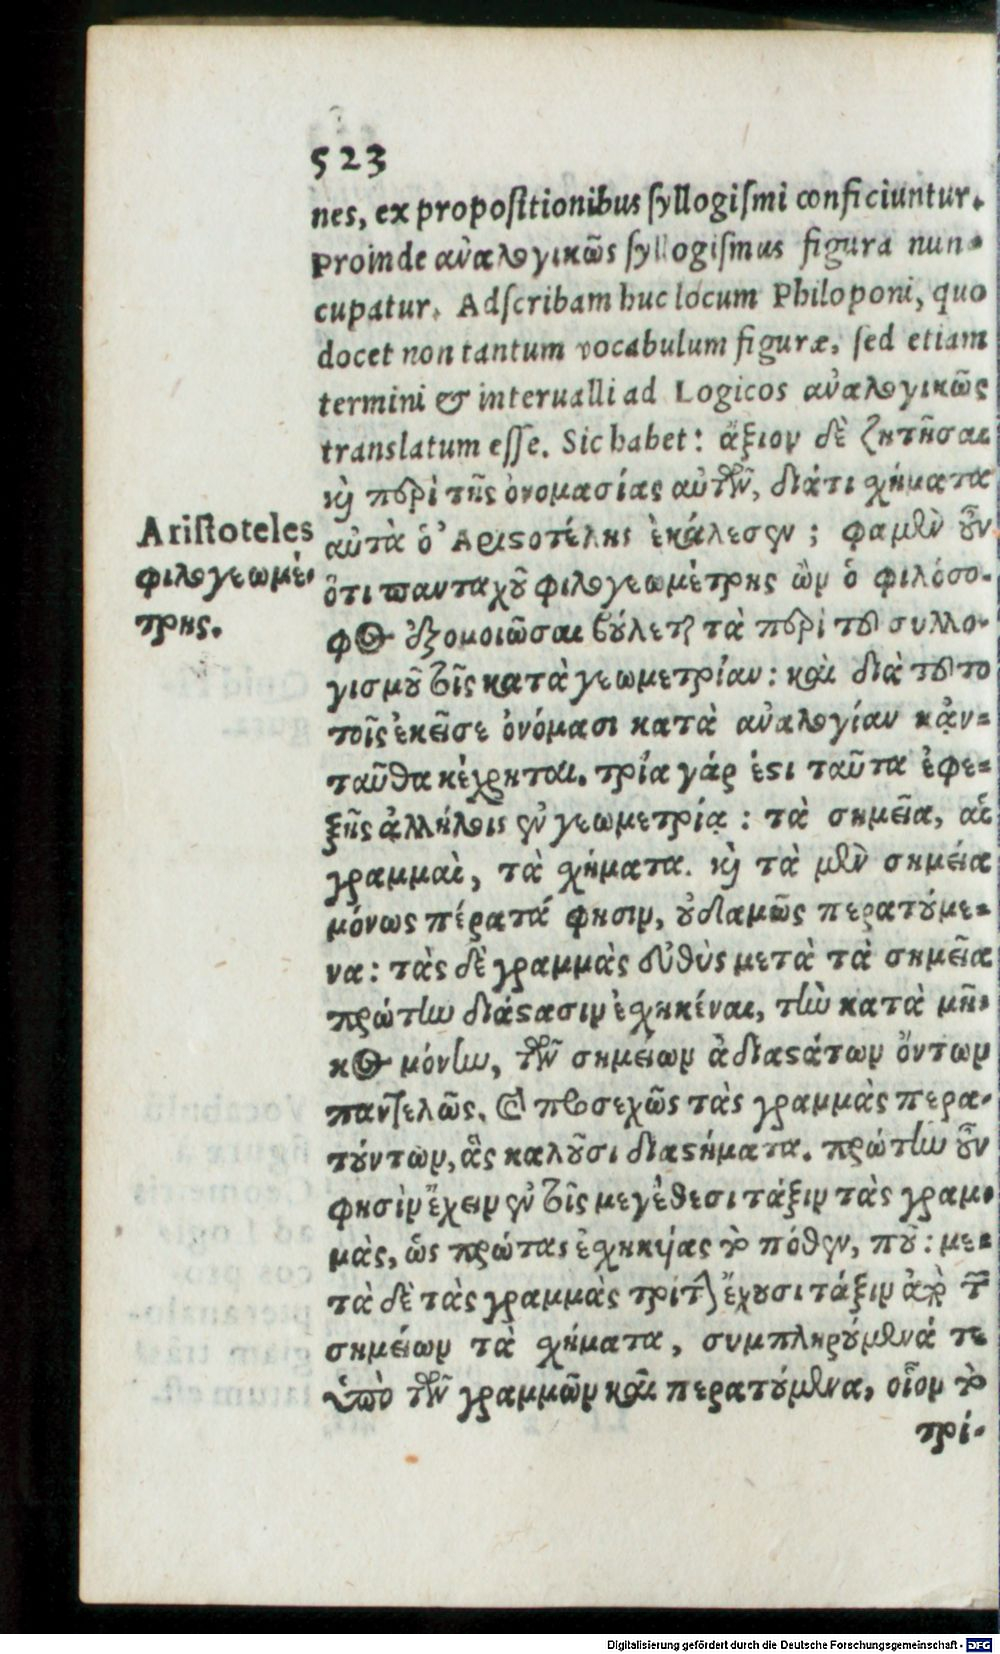 523
nes, ex propoſitionibus ſyllogiſmi conficiuntur.
proinde ἀναλογικῶς ſyllogiſmus figura nun-
cupatur. Adſcribam huc locum Philoponi, quo
docet non tantum vocabulum figuræ, ſed etiam
termini & interualli ad Logicos ἀναλογικῶς
translatum eſſe. Sic habet: ἄξιον δὲ ζητῆσαι
καὶ περὶ τῆς ὀνομασίας αὐτῶν, διάτι χήματα
αὐτὰ ὁ Ἀριστοτέλης ἐκάλεσεν; φαμὲν οὖν
ὅτι πανταχοῦ φιλογεωμέτρης ὢν ὁ φιλόσο-
φος ἐξομοιῶσαι βούλεται τὰ περὶ τοῦ συλλο-
γισμοῦ τοῖς κατὰ γεωμετρίαν: καὶ διὰ τοῦτο
τοῖς ἐκεῖσε ὀνόμασι κατὰ ἀναλογίαν κἀν-
ταῦθα κέχρηται. τρία γάρ ἐστι ταῦτα ἐφε-
ξῆς ἀλλήλοις ἐν γεωμετρίᾳ: τὰ σημεῖα, αἱ
γραμμαὶ, τὰ χήματα. καὶ τὰ μὲν σημεία
μόνως πέρατά φησιν, οὐδαμῶς περατούμε-
να: τὰς δὲ γραμμὰς εὐθὺς μετὰ τὰ σημεῖα
πρώτην διάστασιν ἐχηκέναι, τὴν κατὰ μῆ-
κος μόνην, τῶν σημείων ἀδιαστάτων ὄντων
παντελῶς. προσεχῶς τὰς γραμμὰς περα-
τούντων, ἃς καλοῦσι διαστήματα. πρώτην οὖν
φησὶν ἔχειν ἐν τοῖς μεγέθεσι τάξιν τὰς γραμ-
μὰς, ὡς πρώτας ἐχηκυίας τὸ πόθεν, ποῦ: με-
τὰ δὲ τὰς γραμμὰς τρίτην ἔχουσι τάξιν ἀπὸ τῶν
σημείων τὰ χήματα, συμπληρούμενά τε
ὑπὸ τῶν γραμμῶν καὶ περατούμενα, οἷον τὸ
τρί-
Ariſtoteles
φιλογεωμέ-
τρης.
Digitalisierung gefördert durch die Deutsche Forschungsgemeinschaft - DFG